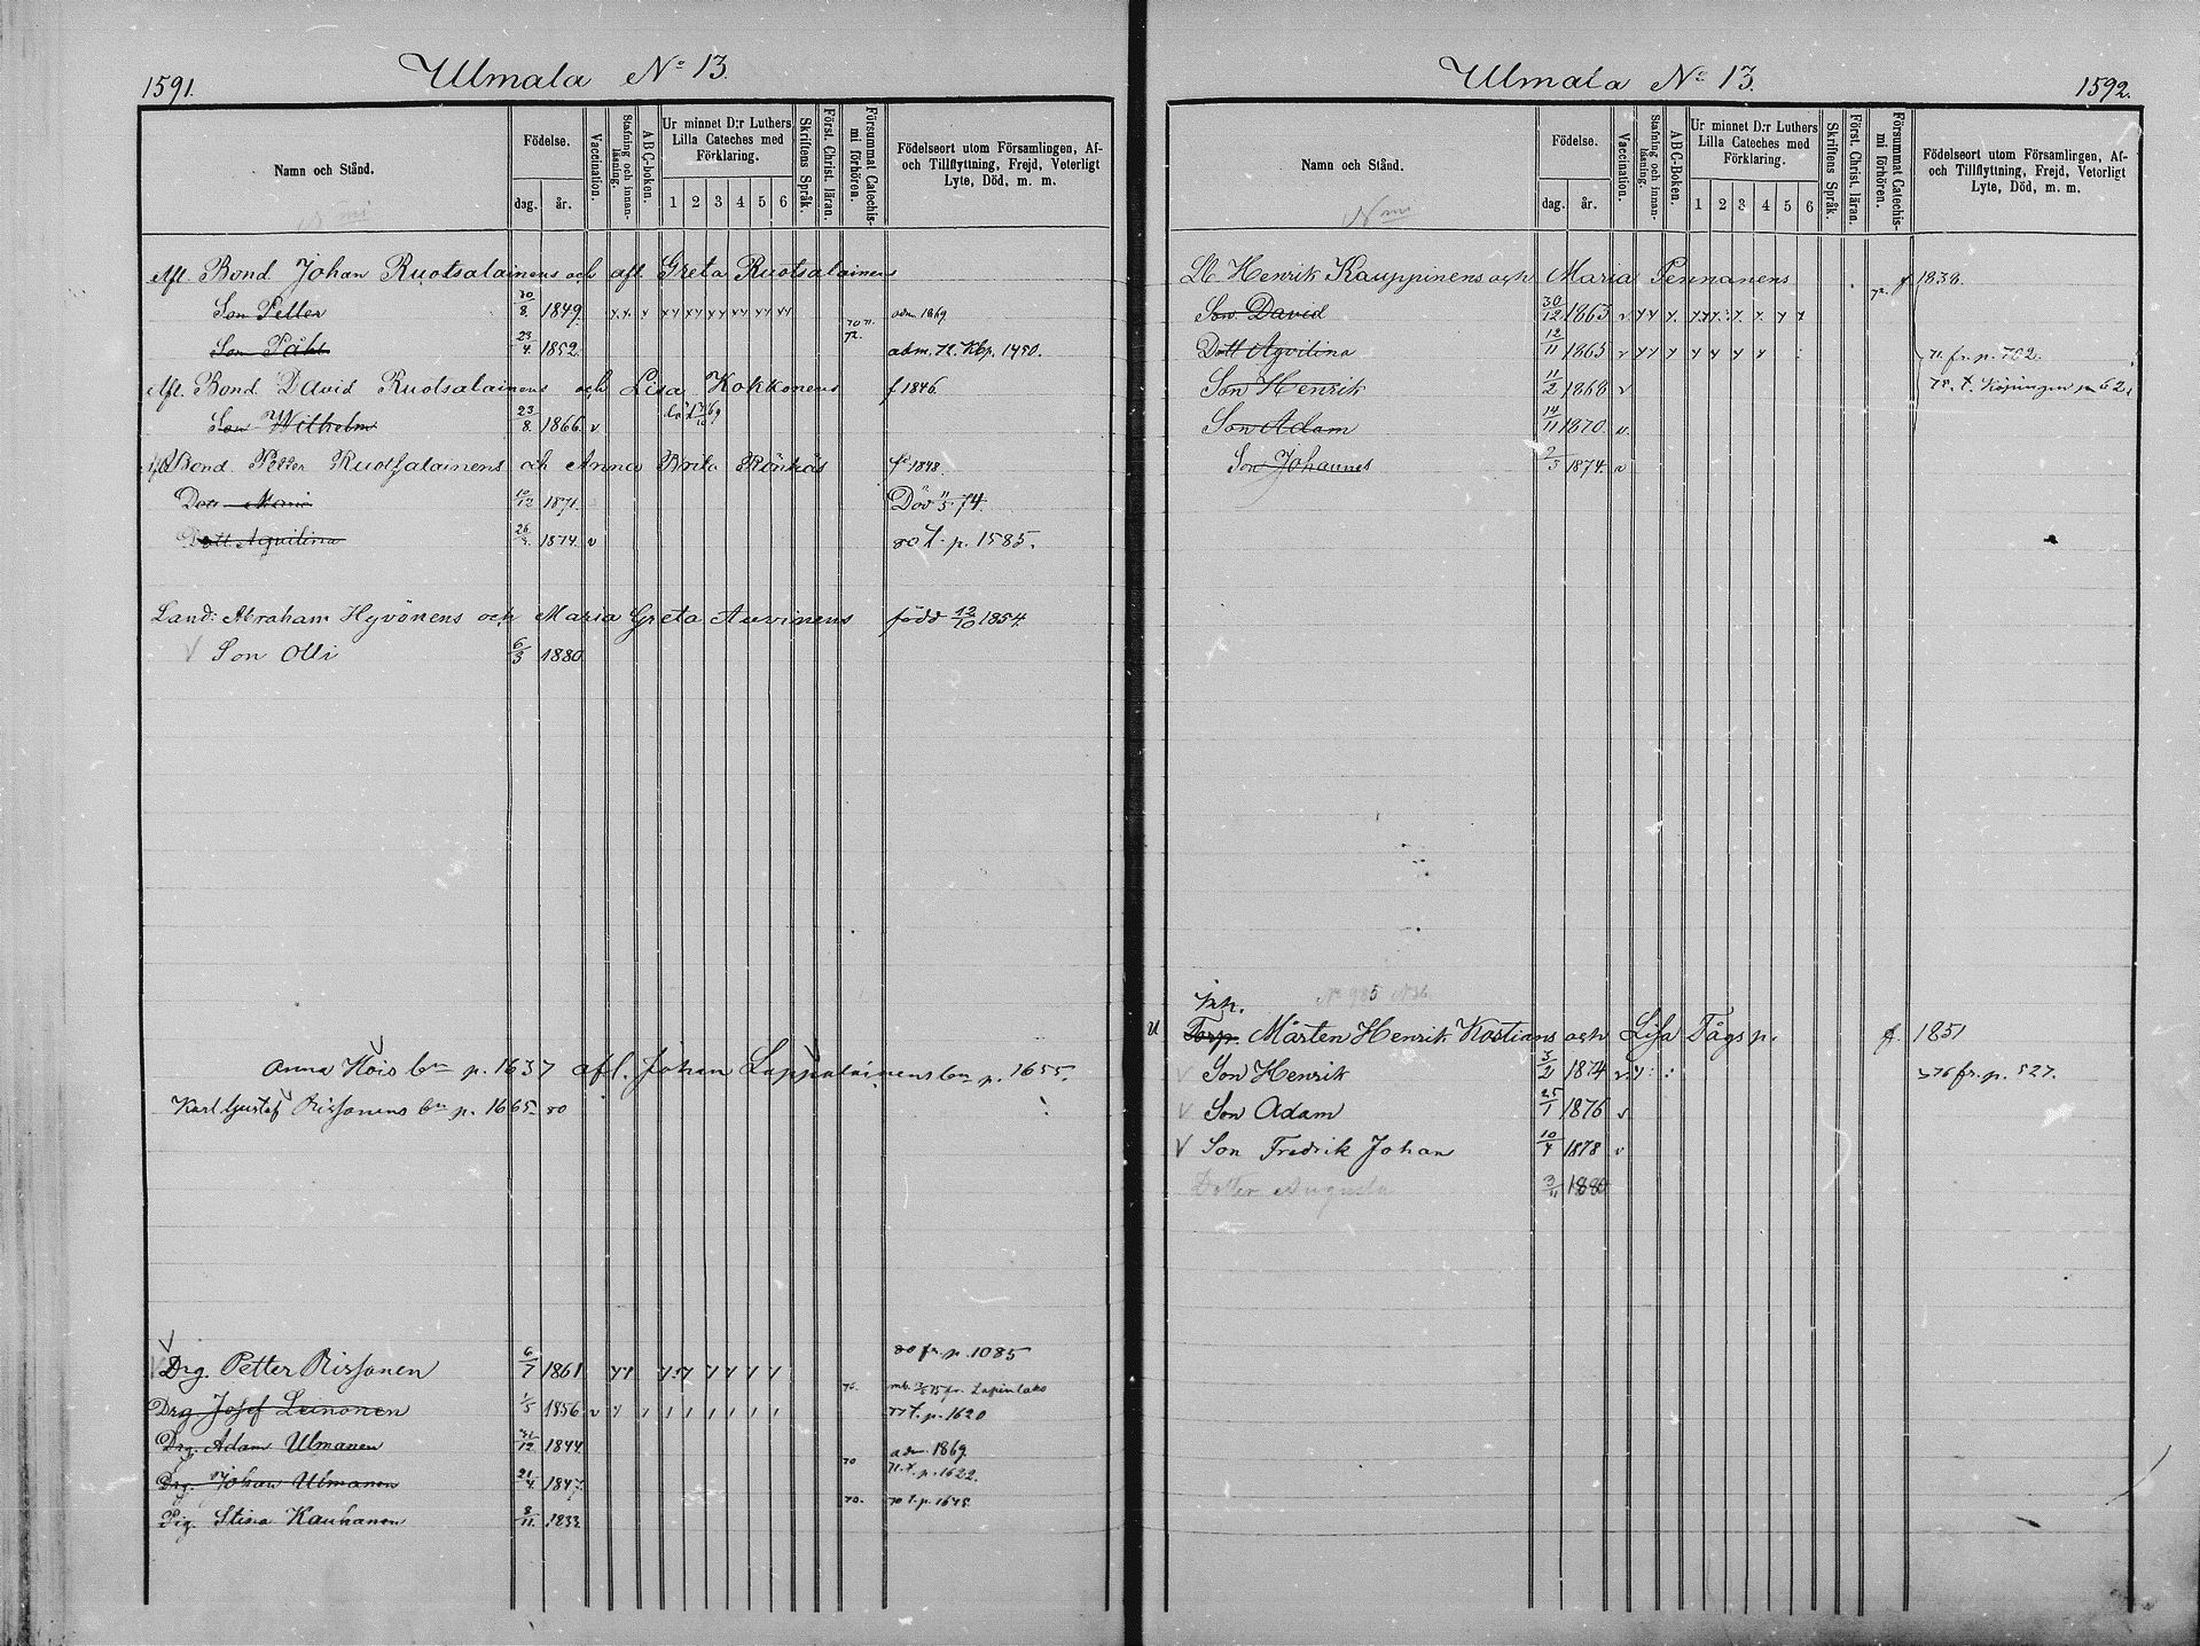 1591.
Ulmala No 13.
Namn och Stånd.
Födelse.
dag.
år.
Vaccination.
Stafning och innanläsning.
ABC-boken.
Ur minnet D:r Luthers Lilla Cateches med Förklaring.
1 2 3 4 5 6
Skriftens Språk.
Först. Christ. läran.
Försummat Catechismi förhören.
Födelseort utom Församlingen, Af- och Tillflyttning, Frejd, Veterligt Lyte, Död, m. m.
Afl. Bond. Johan Ruotsalainens och afl. Greta Ruotsalainens
Son Petter 30/8 1849 adm 1869
Son Påhl 23/4 1852. 70 71. 72. adm. 72. Kbp. 1450.
Afl. Bond. David Ruotsalainens och Lisa Kokkonens f 1846.
Son Wilhelm 23/8 1866 v
Afl. Bond. Petter Ruotsalainens och Anna Brita Rönkäs f. 1848.
Dott. Maria 12 1871. Död 74.
Dott. Aqvilina 26 1874. v 80 t. p. 1585.
Land: Abraham Hyvönens och Maria Greta Auvinens född 12/10 1854.
V Son Olli 6/3 1880
Anna Hois bn p. 1637 afl. Johan Lappalainens bn p. 1655.
Karl Gustaf Rissanens bn p. 1665. 80
V Drg. Petter Rissanen 6/7 1861 80 fr. p. 1085
Drg Josef Leinonen 1/5 1856 v 76. mb. 75 fr. Lapinlaks
77 t. p. 1620
Drg. Adam Ulmanen 31/12 1844 adm. 1869
Drg. Johan Ulmanen 21/4 1847 70 71. t. p. 1622.
Pig. Stina Kauhanen 8/11 1833 70. 70 t. p. 1648.
Ulmala No 13.
1592.
Namn och Stånd.
Födelse.
dag.
år.
Vaccination.
Stafning och innanläsning.
ABC-Boken.
Ur minnet D:r Luthers Lilla Cateches med Förklaring.
1 2 3 4 5 6
Skriftens Språk.
Först. Christ. läran.
Försummat Catechismi förhören.
Födelseort utom Församlingen, Af- och Tillflyttning, Frejd, Veterligt Lyte, Död, m. m.
Henrik Kauppinens och Maria Pennanens 72. f 1838.
Son David 30/12 1863 v
Dott Aqvilina 12/11 1865 v 71. fr. p. 702.
Son Henrik 11/2 1868 v 78. t. Köpingen p 62.
Son Adam 14/11 1870 v.
Son Johannes 2/5 1874 v
No 985
Torp. Mårten Henrik Kostians och Lisa Tågs p. f. 1851
V Son Henrik 3/2 1874 v 76 fr. p. 527.
V Son Adam 25/1 1876 v
V Son Fredrik Johan 10/4 1878 v
Dotter Augusta 3/11 1880